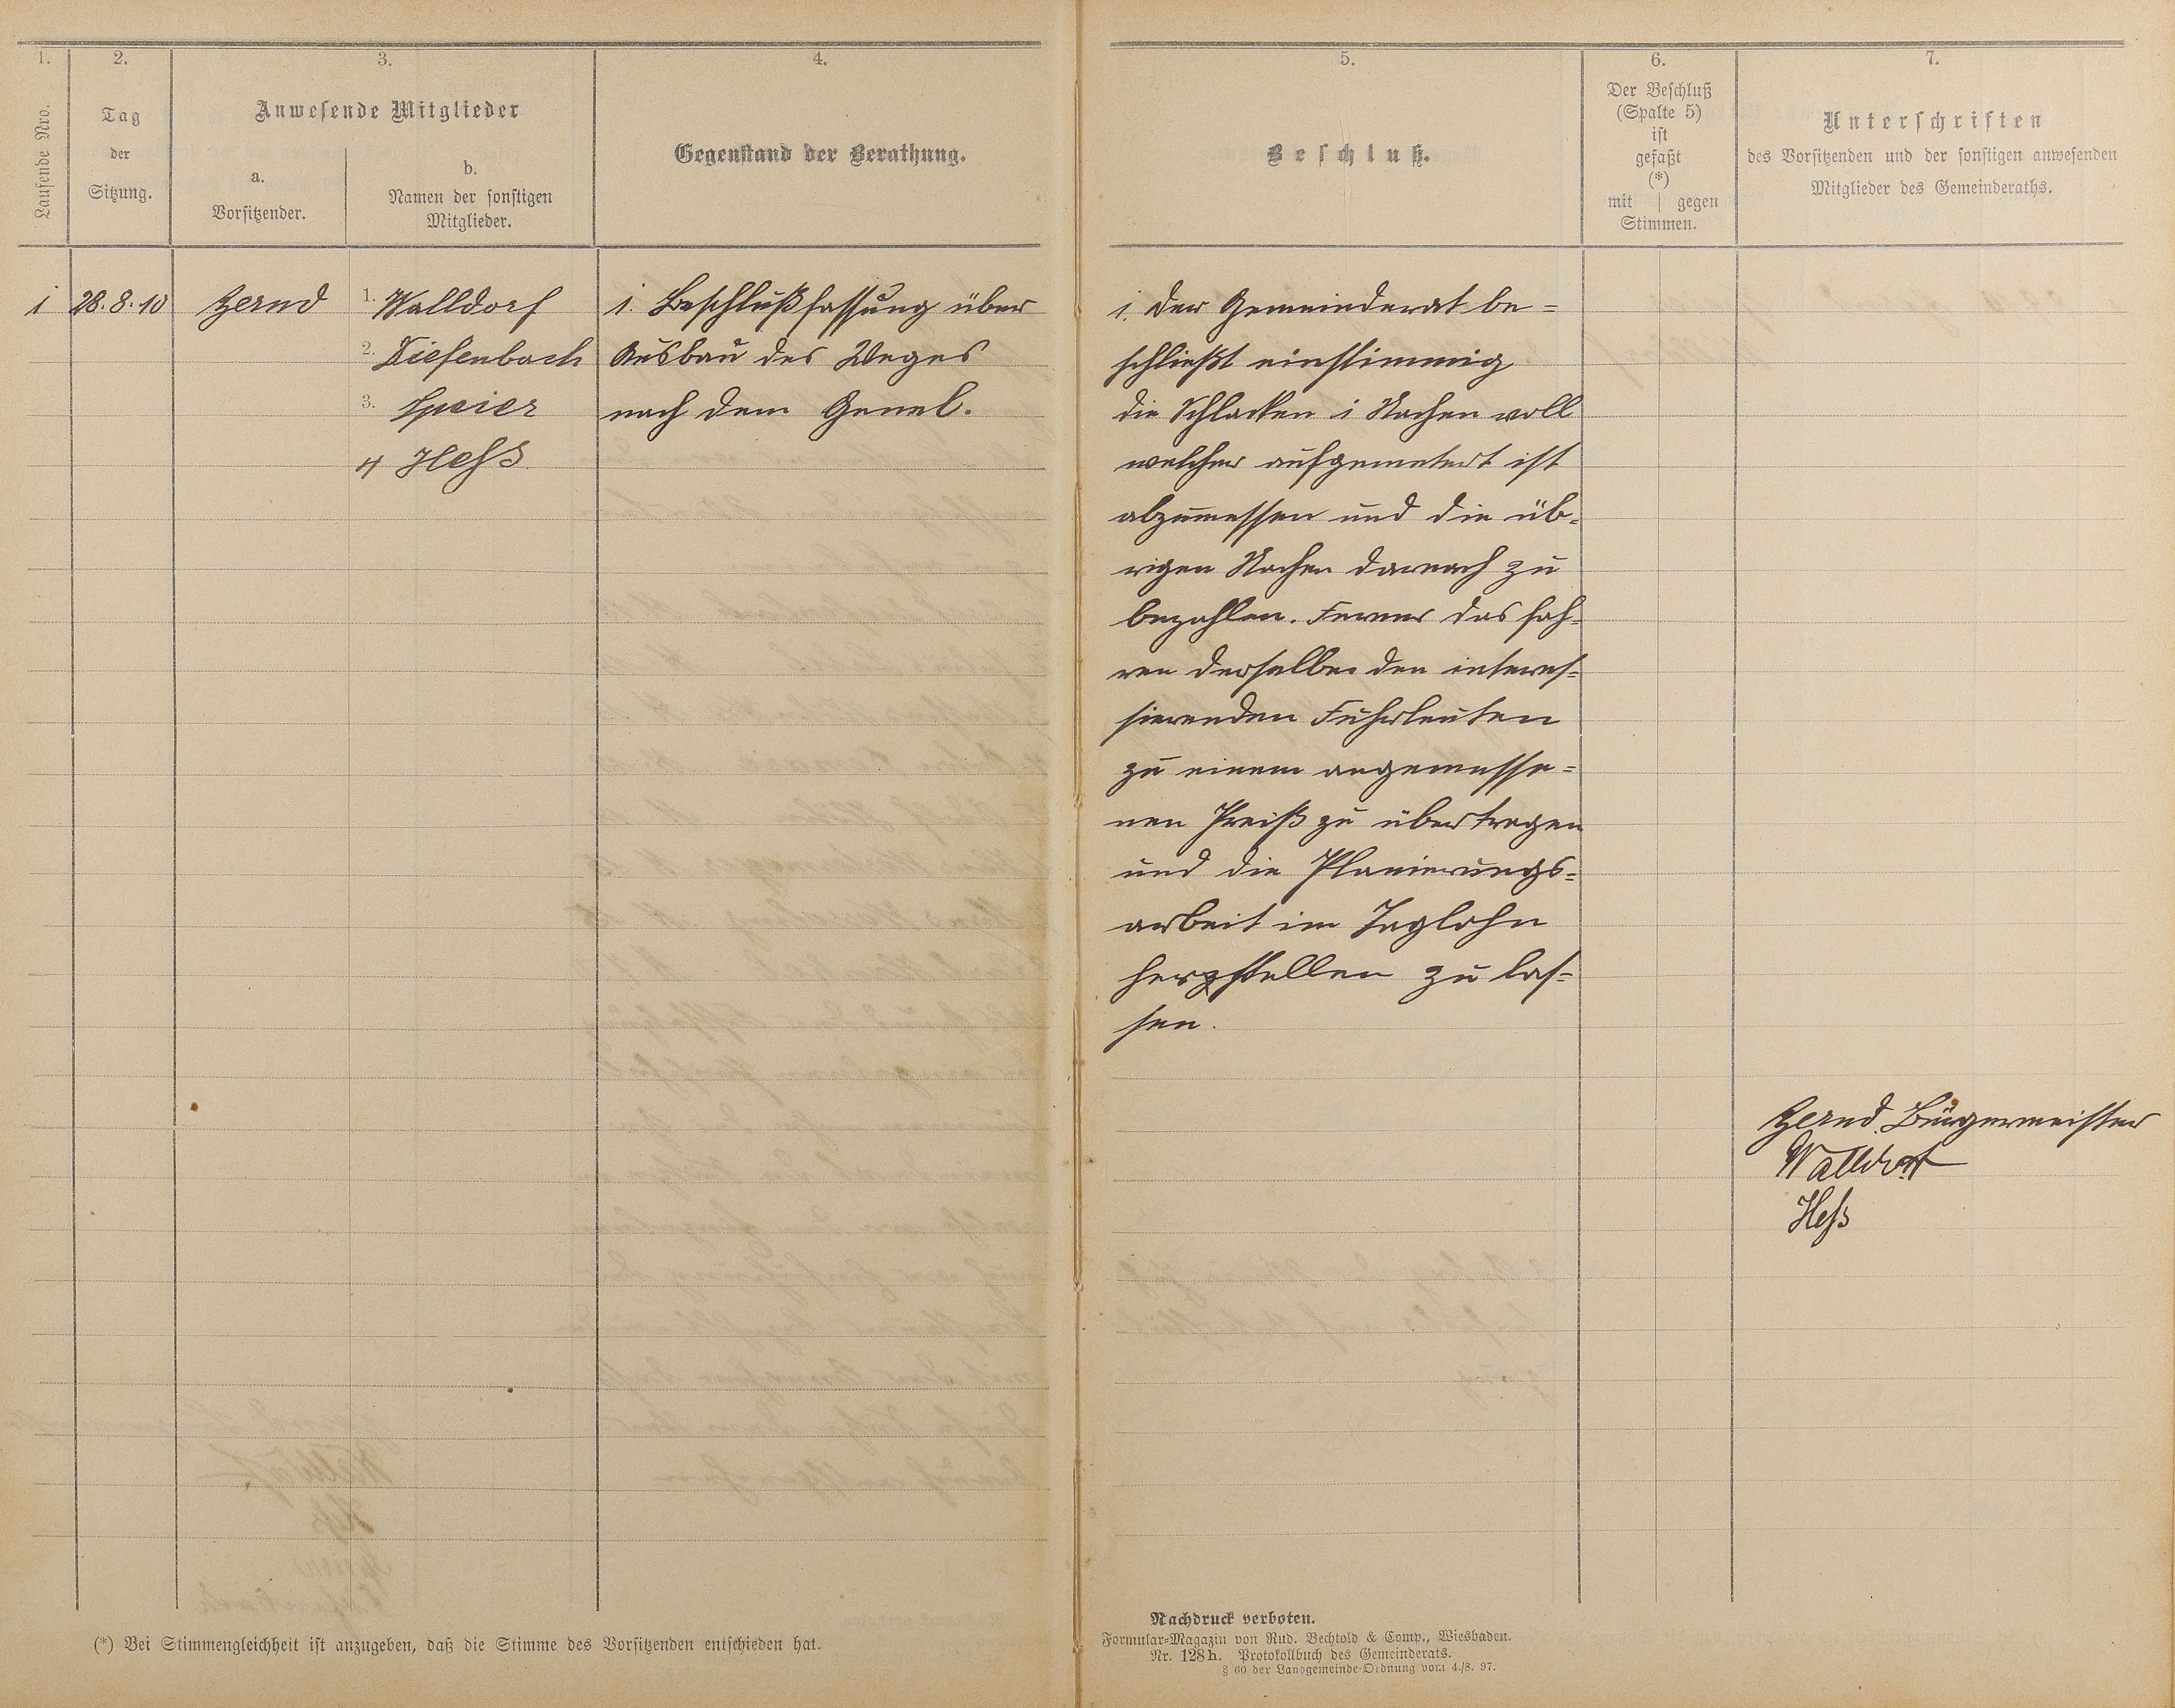 1.
Laufende Nro.
2.
Tag
der
Sitzung.
3.
Anwesende Mitglieder
a.
Vorsitzender.
b.
Namen der sonstigen
Mitglieder.
4.
Gegenstand der Berathung.
1 28.8.10 Zernd
1. Walldorf
2. Diefenbach
3. Speier
4 Heß
1. Beschlußfassung über
Ausbau des Weges
nach dem Genel.
(*) Bei Stimmengleichheit ist anzugeben, daß die Stimme des Vorsitzenden entschieden hat.
5.
Beschluß.
6.
Der Beschluß
(Spalte 5)
ist
gefaßt
(*)
mit | gegen
Stimmen.
7.
Unterschriften
des Vorsitzenden und der sonstigen anwesenden
Mitglieder des Gemeinderaths.
1. Der Gemeinderat be=
schließt einstimmig
die Schlacken 1 Nachen voll
welcher aufgemetert ist
abzumessen und die üb=
rigen Nachen darnach zu
bezahlen. Ferner das fah=
ren derselben den interes=
sierenden Fuhrleuten
zu einem angemesse=
nen Preiß zu übertragen
und die Planierungs=
arbeit im Taglohn
herstellen zu las=
sen.
Zernd. Bürgermeister
Walldorf
Heß
Nachdruck verboten.
Formular=Magazin von Rud. Bechtold & Comp., Wiesbaden.
Nr. 128h. Protokollbuch des Gemeinderats.
§ 60 der Landgemeinde=Ordnung vom 4./8. 97.